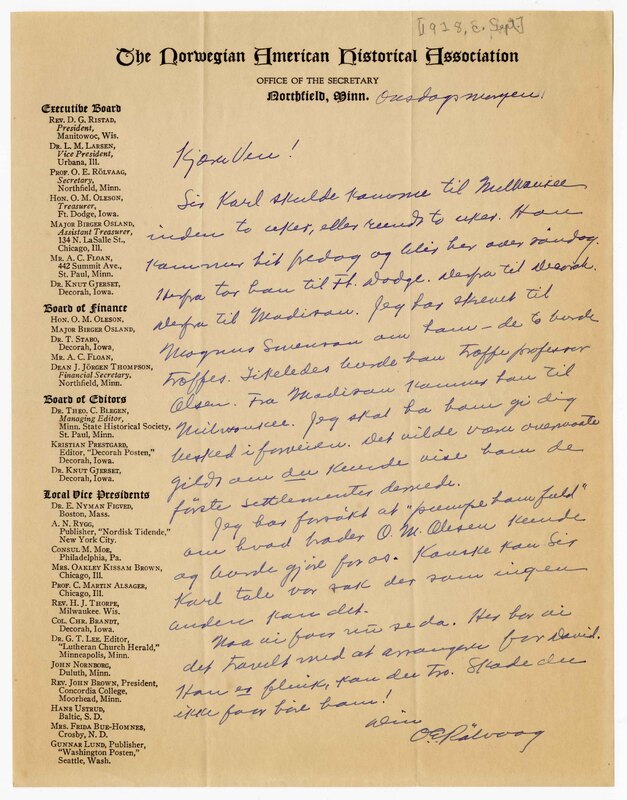 [1928, 8. Sept.]
The Norwegian American Historical Association
OFFICE OF THE SECRETARY
Northfield, Minn. Onsdagsmorgen!
Executive Board
REV. D. G. RISTAD,
President,
Manitowoc, Wis.
DR. L. M. LARSEN,
Vice President,
Urbana, Ill.
PROF. O. E. RÖLVAAG,
Secretary,
Northfield, Minn.
HON. O. M. OLESON,
Treasurer,
Ft. Dodge, Iowa.
MAJOR BIRGER OSLAND,
Assistant Treasurer,
134 N. LaSalle St.,
Chicago, Ill.
MR. A. C. FLOAN,
442 Summit Ave.,
St. Paul, Minn.
DR. KNUT GJERSET,
Decorah, Iowa.
Board of Finance
HON. O. M. OLESON,
MAJOR BIRGER OSLAND,
DR. T. STABO,
Decorah, Iowa.
MR. A. C. FLOAN,
DEAN J. JÖRGEN THOMPSON,
Financial Secretary,
Northfield, Minn.
Board of Editors
DR. THEO. C. BLEGEN,
Managing Editor,
Minn. State Historical Society,
St. Paul, Minn.
KRISTIAN PRESTGARD,
Editor, "Decorah Posten,"
Decorah, Iowa.
DR. KNUT GJERSET,
Decorah, Iowa.
Local Vice Presidents
DR. E. NYMAN FIGVED,
Boston, Mass.
A. N. RYGG,
Publisher, "Nordisk Tidende,"
New York City.
CONSUL M. MOE,
Philadelphia, Pa.
MRS. OAKLEY KISSAM BROWN,
Chicago, Ill.
PROF. C. MARTIN ALSAGER,
Chicago, Ill.
REV. H. J. THORPE,
Milwaukee. Wis.
COL. CHR. BRANDT,
Decorah, Iowa.
DR. G. T. LEE, Editor,
"Lutheran Church Herald,"
Minneapolis, Minn.
JOHN NORNBORG,
Duluth, Minn.
REV. JOHN BROWN, President,
Concordia College,
Moorhead, Minn.
HANS USTRUD,
Baltic, S. D.
MRS. FRIDA BUE-HOMNES,
Crosby, N. D.
GUNNAR LUND, Publisher,
"Washington Posten,"
Seattle, Wash.
Kjære Ven!
Sir Karl skulde komme til Milwaukee
inden to uker, eller rundt to uker. Han
kommer hit fredag og blir her over søndag.
Herfra tar han til Ft. Dodge. Derfra til Decorah.
Derfra til Madison. Jeg har skrevet til
Magnus Swenson om ham – de to burde
træffes. Likeledes burde han træffe professor
Olsen. Fra Madison kommer han til
Milwaukee. Jeg skal ha ham gi dig
besked i forveien. Det vilde være overmaate
gildt om du kunde vise ham de
første settlementer dernede.
Jeg har forsökt at "pumpe ham fuld"
om hvad O. M. Oleson kunde
og burde gjøre for os. Kanske kan Sir
Karl tale vor sak der som ingen
anden kan det.
Naa vi faar nu se da. Her har vi
det travelt med at arrangere for David.
Han er flink, kan du tro. Skade du
ikke faar høre ham!
Din
O.E. Rölvaag